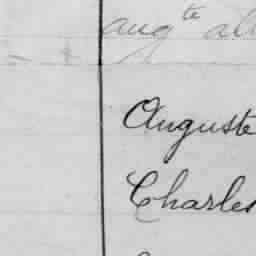 augte al
Auguste
Charles